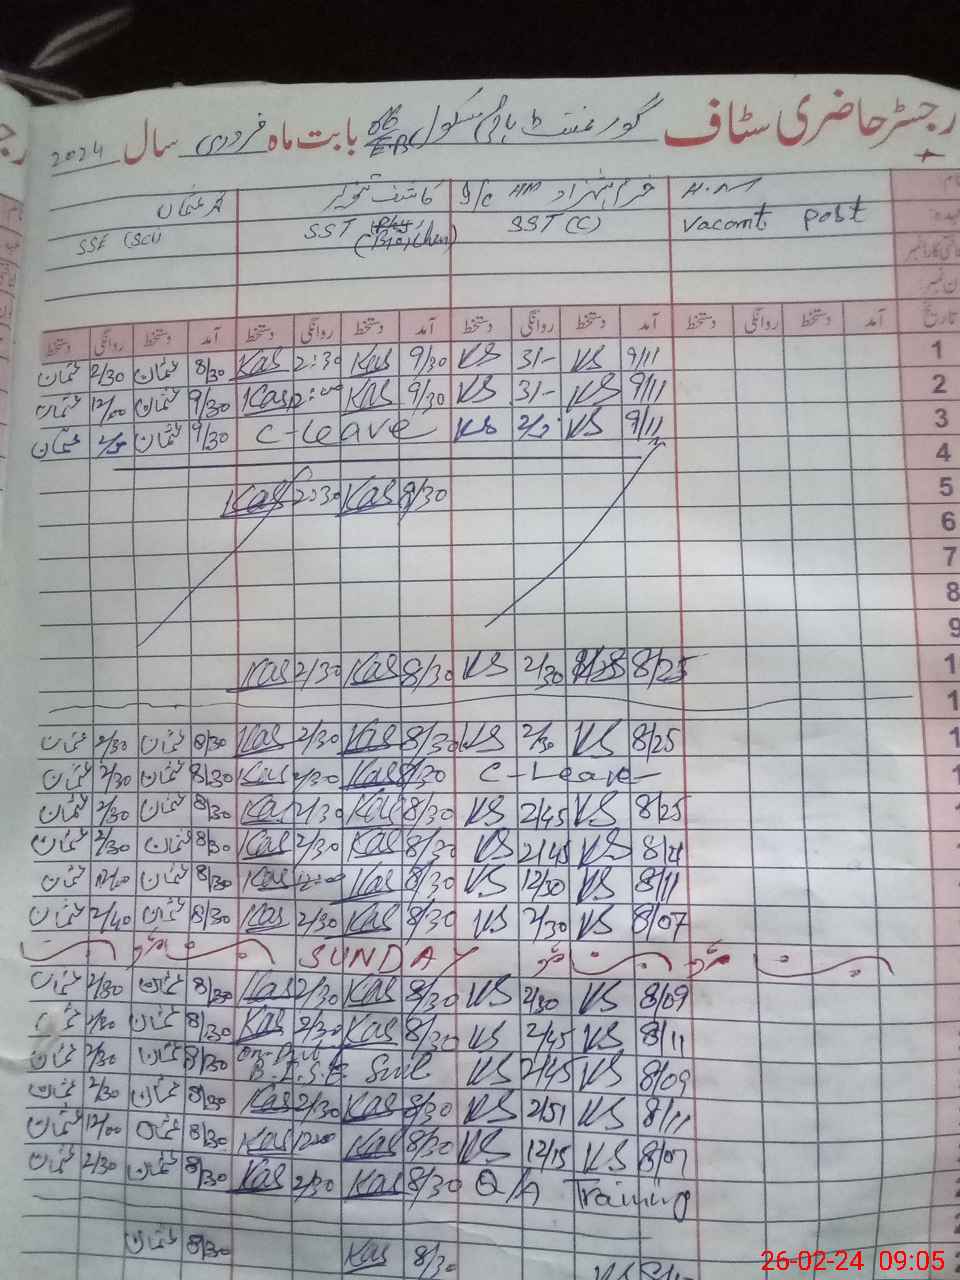 رجسٹر حاضری سٹاف گورنمنٹ ہائی سکول 06/EB بابت ماہ فروری سال 2024
خرم شہزاد I/C HM کاشف عثمان
Vacant post SST (C) SST (Bio, Chem) SSE (Sci)
تاریخ آمد دستخط روانگی دستخط آمد دستخط روانگی دستخط آمد دستخط روانگی دستخط آمد دستخط روانگی دستخط
1 9/11 KS 3/- KS 9/30 Kas 2:30 Kas 8/30 عثمان 2/30 عثمان
2 9/11 KS 3/- KS 9/30 Kas Kas 9/30 عثمان 12/00 عثمان
3 9/11 KS KS C-Leave 9/30 عثمان عثمان
4
5 9/30 Kas 2:30 Kas
6
7
8
9
1 8/25 2/30 KS 8/30 Kas 2/30 Kas
1
1 8/25 KS 2/30 KS 8/30 Kas 2/30 Kas 8/30 عثمان 2/30 عثمان
C-Leave 8/30 Kas 2/30 Kas 8/30 عثمان 2/30 عثمان
8/25 KS 2/45 KS 8/30 Kas 2/30 Kas 8/30 عثمان 2/30 عثمان
KS 2/45 KS 8/30 Kas 2/30 Kas 8/30 عثمان 2/30 عثمان
8/11 KS 12/30 KS 8/30 Kas Kas 8/30 عثمان عثمان
8/07 KS 2/30 KS 8/30 Kas 2/30 Kas 8/30 عثمان 2/40 عثمان
SUNDAY
8/09 KS 2/30 KS 8/30 Kas 2/30 Kas 8/30 عثمان 2/30 عثمان
8/11 KS 2/45 KS 8/30 Kas 2/30 Kas 8/30 عثمان عثمان
8/09 KS 2/45 KS B.I.S.E 8/30 عثمان 2/30 عثمان
8/11 KS 2/51 KS 8/30 Kas 2/30 Kas 8/30 عثمان 2/30 عثمان
8/07 KS 12/15 KS 8/30 Kas 12:00 Kas 8/30 عثمان 12/00 عثمان
Q/A Training 8/30 Kas 2/30 Kas 8/30 عثمان 2/30 عثمان
KS 8/30 Kas 8/30 عثمان
26-02-24 09:05